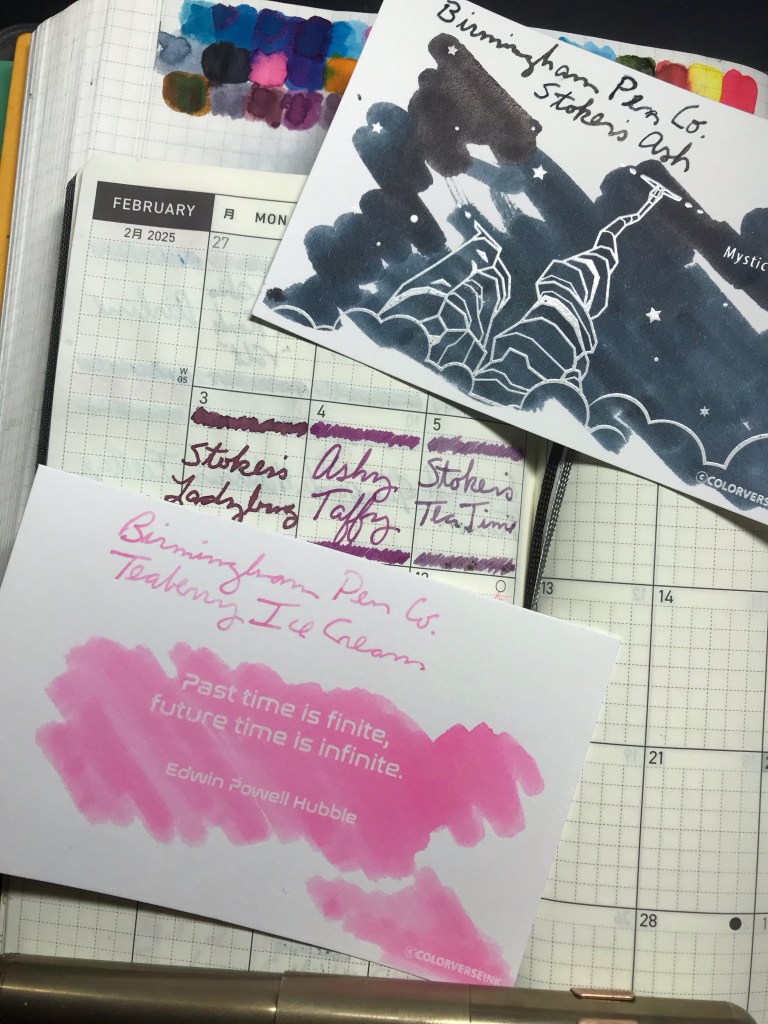 Birmingham Pen Co.
Stoker's Ash
Mystic
©COLORVERSE
FEBRUARY
月 MON
2月 2025
27
W
05
3
4
5
Stoker's
Ladybug
Ashy
Taffy
Stoker's
Tea Time
12
13
14
Birmingham Pen Co.
Teaberry Ice Cream
Past time is finite,
future time is infinite.
Edwin Powell Hubble
21
28
©COLORVERSEINK